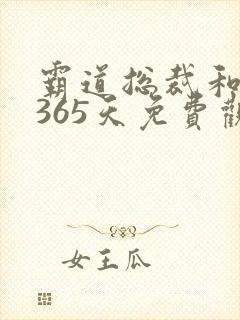 霸道总裁和
365天免費觀
女王瓜